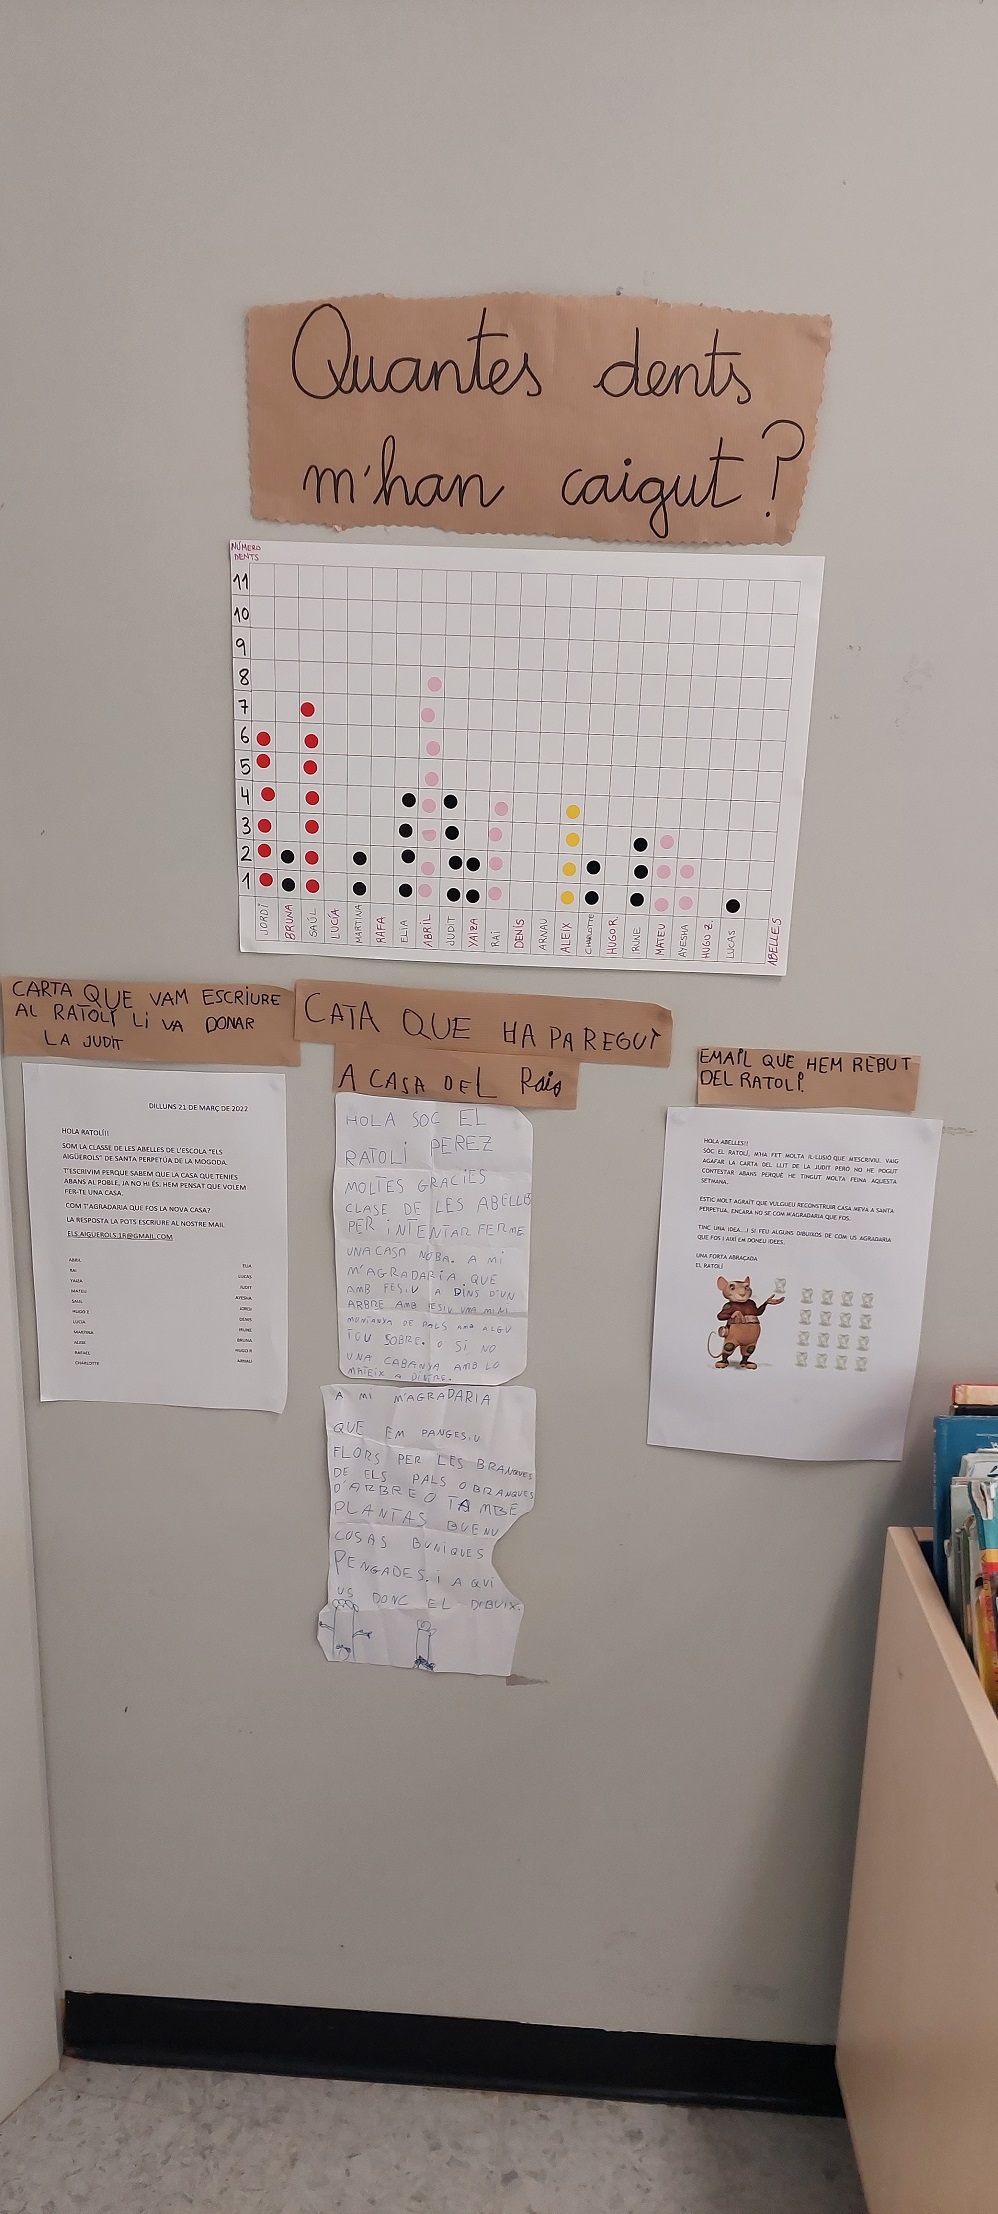 Quantes dents
m'han caigut?
NÚMERO
DENTS
11
10
9
8
7
6
5
4
3
2
1
JORDI
BRUNA
SAÚL
LUCÍA
MARTINA
RAFA
ELIA
ABRIL
JUDIT
YAIZA
RAI
DENÍS
ARNAU
ALEIX
CHARLOTTE
HUGO R.
IRUNE
MATEU
AYESHA
HUGO Z.
LUCAS
ABELLES
CARTA QUE VAM ESCRIURE
AL RATOLÍ LI VA DONAR
LA JUDIT
DILLUNS 21 DE MARÇ DE 2022
HOLA RATOLÍ!!
SOM LA CLASSE DE LES ABELLES DE L'ESCOLA "ELS
AIGÜEROLS" DE SANTA PERPETÚA DE LA MOGODA.
T'ESCRIVIM PERQUE SABEM QUE LA CASA QUE TENIES
ABANS AL POBLE, JA NO HI ÉS. HEM PENSAT QUE VOLEM
FER-TE UNA CASA.
COM T'AGRADARIA QUE FOS LA NOVA CASA?
LA RESPOSTA LA POTS ESCRIURE AL NOSTRE MAIL
ELS.AIGUEROLS.1R@GMAIL.COM
ABRIL
RAI
YAIZA
MATEU
SAUL
HUGO Z
LUCIA
MARTINA
ALEIX
RAFAEL
CHARLOTTE
ELIA
LUCAS
JUDIT
AYESHA
JORDI
DENIS
IRUNE
BRUNA
HUGO R
ARNAU
CATA QUE HA PAREGUT
A CASA DEL Rais
HOLA SOC EL
RATOLÍ PEREZ
MOLTES GRACIES
CLASE DE LES ABELLES
PER INTENTAR FERME
UNA CASA NOBA. A MI
M'AGRADARIA QUE
AMB FESIU A DINS D'UN
ARBRE AMB FESIU UNA MINI
MONTANYA DE PALS AMB ALGU
TOU SOBRE. O SI NO
UNA CABANYA AMB LO
MATEIX A DINTRE.
A MI M'AGRADARIA
QUE EM PANGESIU
FLORS PER LES BRANQUES
DE ELS PALS O BRANQUES
D'ARBRE O TAMBE
PLANTAS BUENU
COSAS BUNIQUES
PENGADES. I A QUI
US DONC EL DIBUIX.
EMAIL QUE HEM REBUT
DEL RATOLÍ.
HOLA ABELLES!!
SÓC EL RATOLÍ, M'HA FET MOLTA IL·LUSIÓ QUE M'ESCRIVIU. VAIG
AGAFAR LA CARTA DEL LLIT DE LA JUDIT PERÒ NO HE POGUT
CONTESTAR ABANS PERQUÈ HE TINGUT MOLTA FEINA AQUESTA
SETMANA.
ESTIC MOLT AGRAÏT QUE VULGUEU RECONSTRUIR CASA MEVA A SANTA
PERPETUA. ENCARA NO SE COM M'AGRADARIA QUE FOS.
TINC UNA IDEA...I SI FEU ALGUNS DIBUIXOS DE COM US AGRADARIA
QUE FOS I AIXÍ EM DONEU IDEES.
UNA FORTA ABRAÇADA
EL RATOLÍ